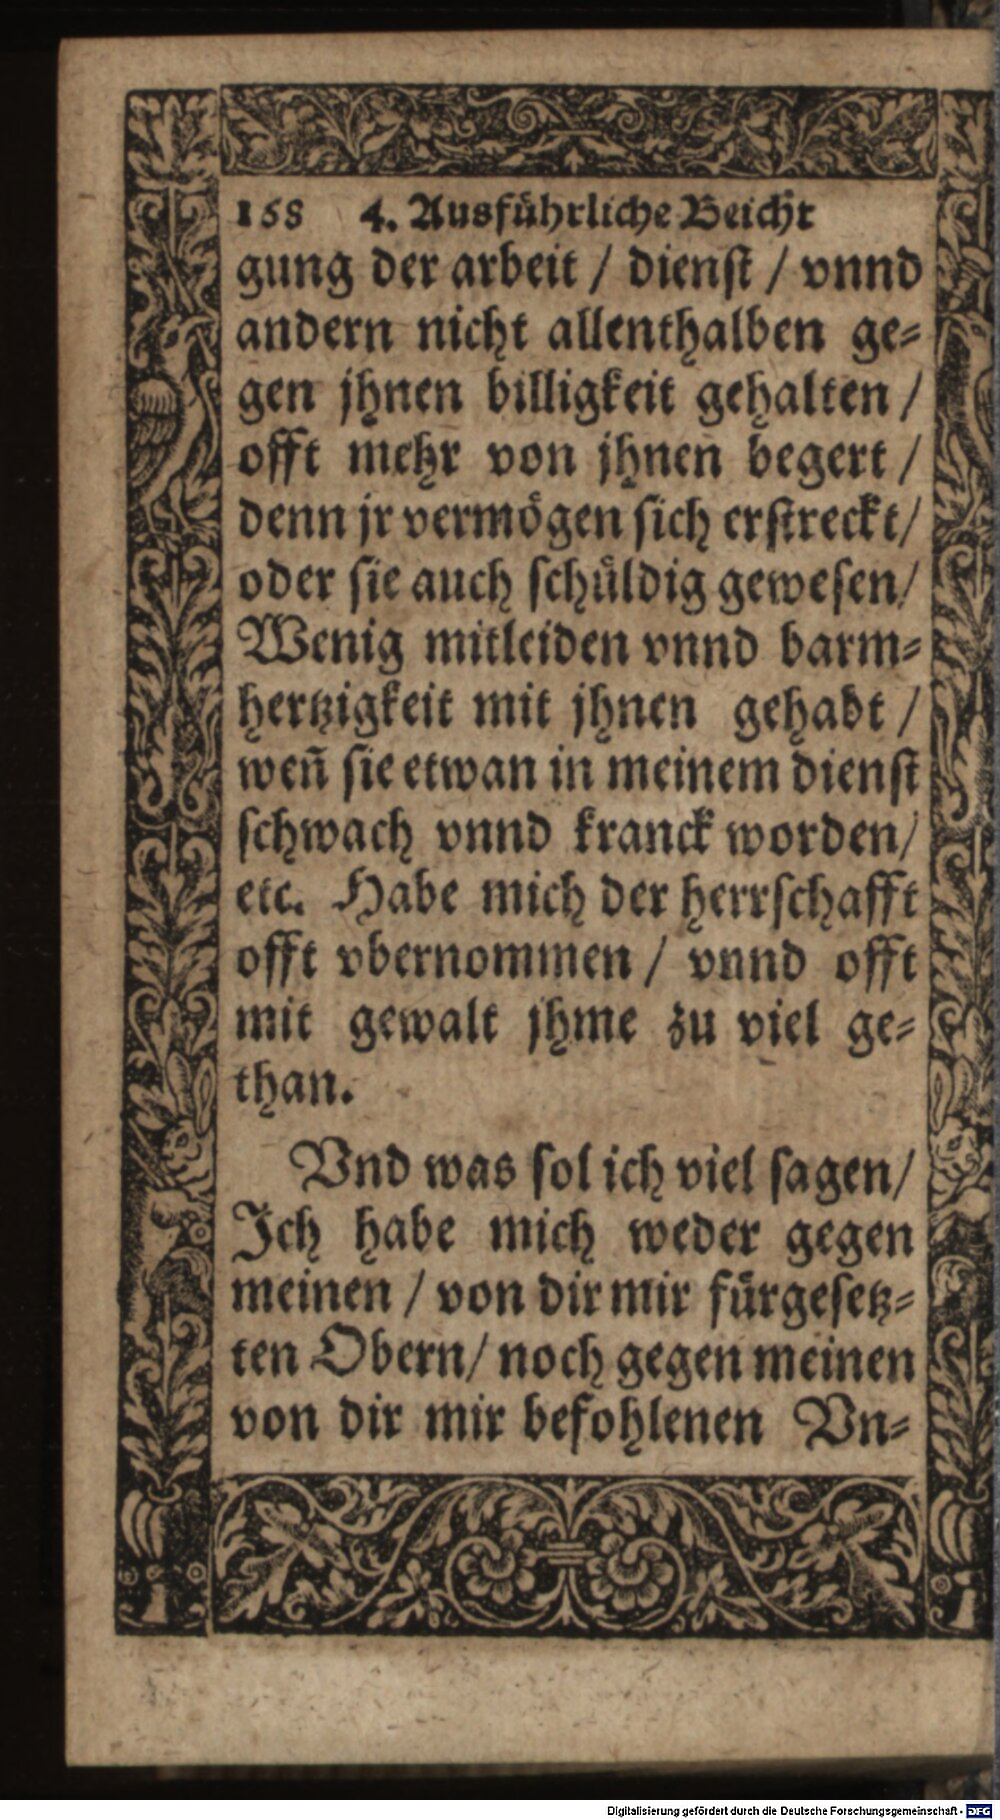 158 4. Ausführliche Beicht
gung der arbeit / dienſt / vnnd
andern nicht allenthalben ge⸗
gen jhnen billigkeit gehalten /
offt mehr von jhnen begert /
denn jr vermögen ſich erſtreckt /
oder ſie auch ſchüldig geweſen /
Wenig mitleiden vnnd barm⸗
hertzigkeit mit jhnen gehabt /
weñ ſie etwan in meinem dienſt
ſchwach vnnd kranck worden /
etc. Habe mich der herrſchafft
offt vbernommen / vnnd offt
mit gewalt jhme zu viel ge⸗
than.
Vnd was ſol ich viel ſagen /
Ich habe mich weder gegen
meinen / von dir mir fürgeſetz⸗
ten Obern / noch gegen meinen
von dir mir befohlenen Vn⸗
Digitalisierung gefördert durch die Deutsche Forschungsgemeinschaft - DFG